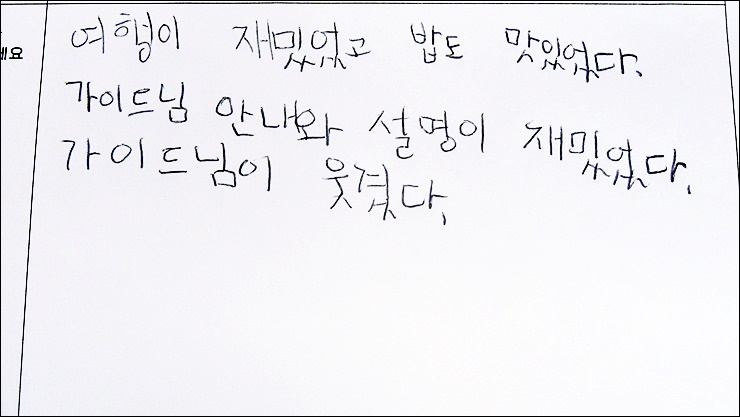 세요
여행이 재밌었고 밥도 맛있었다.
가이드님 안내와 설명이 재밌었다.
가이드님이 웃겼다.